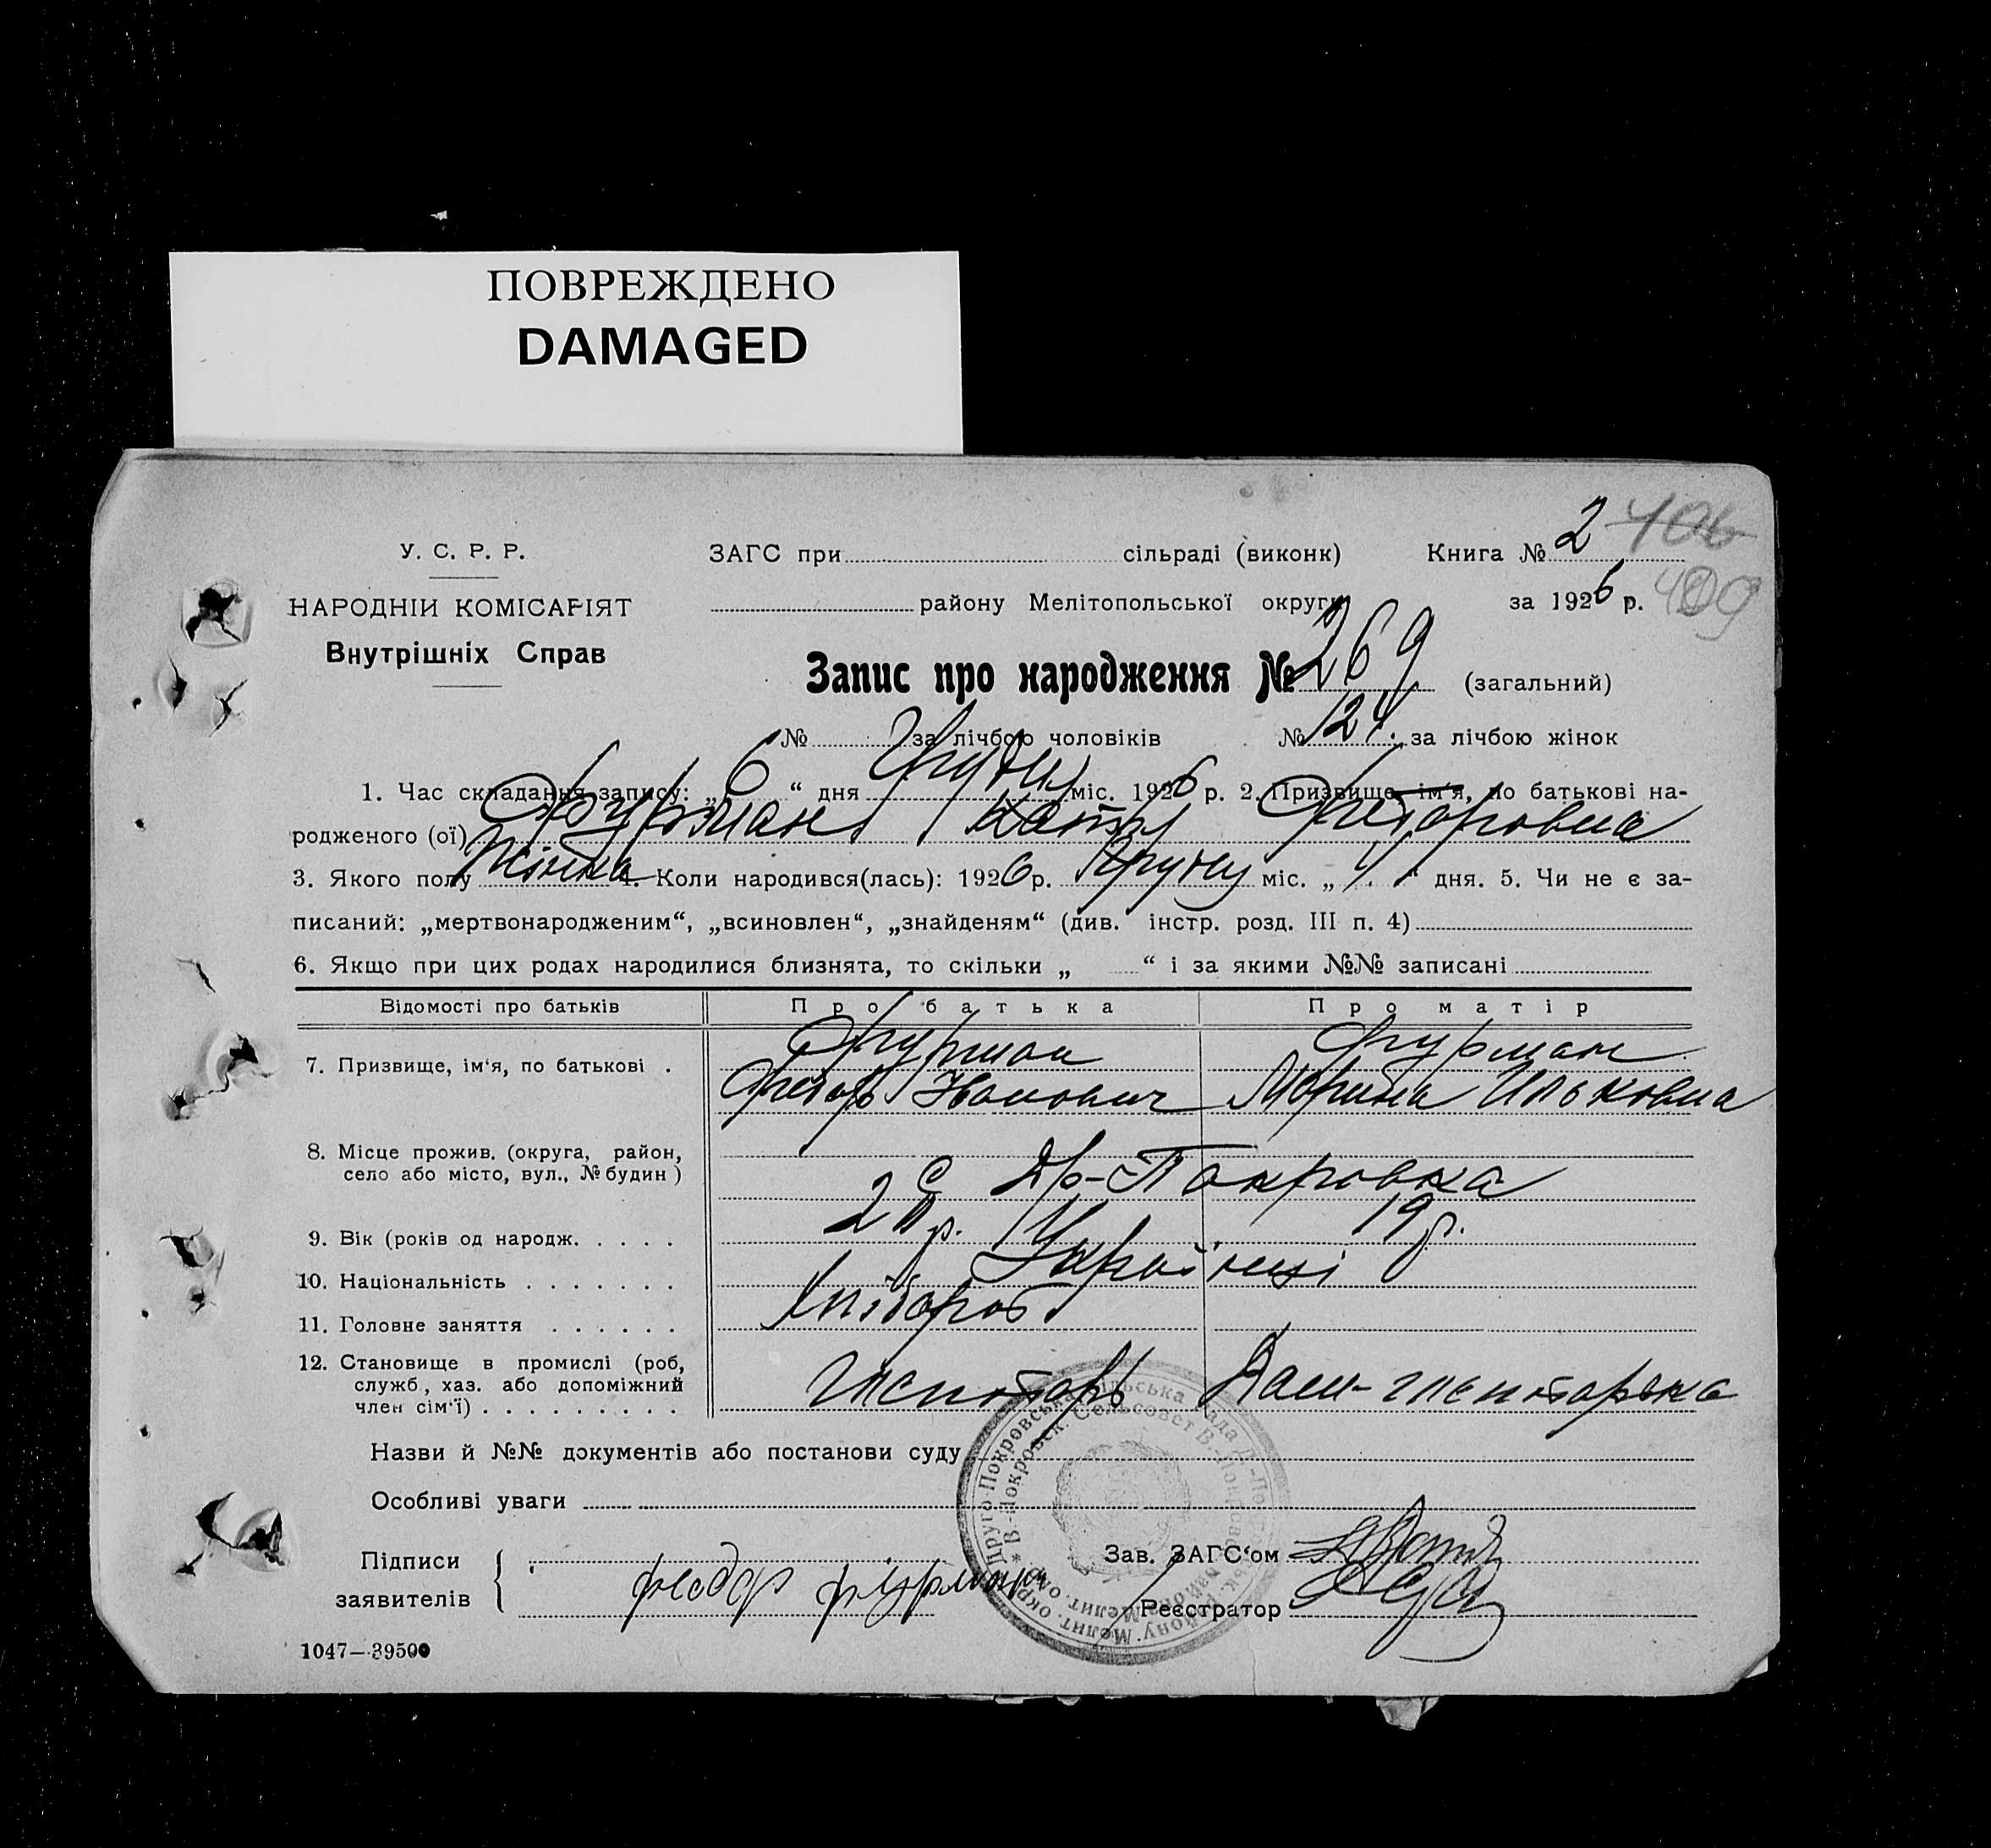 ПОВРЕЖДЕНО
DAMAGED
У. С. Р. Р.
НАРОДНІЙ КОМІСАРІЯТ
Внутрішніх Справ
ЗАГС при сільраді (виконк) Книга № 2 406
району Мелітопольської округи за 1926 р. 409
Запис про народження № 269 (загальний)
№ за лічбою чоловіків № 124. за лічбою жінок
1. Час складання запису: „6“ дня Грудня міс. 1926 р. 2. Призвище, ім'я, по батькові на-
родженого (ої) Фурман Катря Федоровна
3. Якого полу Жінка 4. Коли народився(лась): 1926 р. Грудня міс. „4“ дня. 5. Чи не є за-
писаний: „мертвонародженим“, „всиновлен“, „знайденям“ (див. інстр. розд. III п. 4)
6. Якщо при цих родах народилися близнята, то скільки „ “ і за якими №№ записані
Відомості про батьків Про батька Про матір
7. Призвище, ім'я, по батькові . Фурман Фурман
Федор Иванович Марина Ильковна
8. Місце прожив. (округа, район,
село або місто, вул., № будин ) с Др-Покровка
9. Вік (років од народж. . . . . р. 19 р.
10. Національність . . . . . . . Українці
11. Головне заняття . . . . . . Хлібороб
12. Становище в промислі (роб,
служб, хаз. або допоміжний
член сім'ї) . . . . . . . . .
Назви й №№ документів або постанови суду
Особливі уваги
Підписи
заявителів
федор фурман
Зав. ЗАГС'ом
Реєстратор
1047—39500